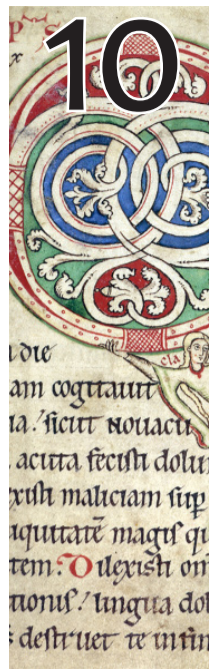 10
P S
x
cla
die
am cogitauit
ia / sicut nouacu
acuta fecisti dolum
existi maliciam sup
iquitatē magis qu
tem: Dilexisti om
tionis / lingua dol
destruet te in fin